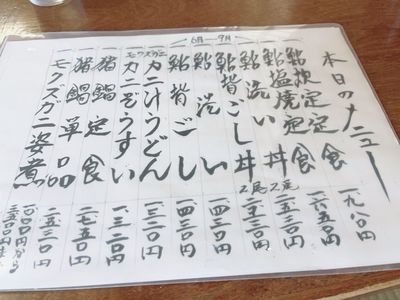 本日のメニュー
一鮎 定食 一、九八〇円
一鮎塩焼定食 一、六五〇円
一鮎洗い丼 2尾 二、五三〇円
一鮎背ごし丼 2尾 二、五三〇円
6月―9月
一鮎洗い 一、四三〇円
一鮎背ごし 一、四三〇円
一カニ汁うどん 一、三二〇円
モクズガニ
一カニぞうすい 一、三二〇円
一猪鍋定食 二、七五〇円
一猪鍋単品 二、五三〇円
一モクズガニ姿煮 一〇〇〇円から